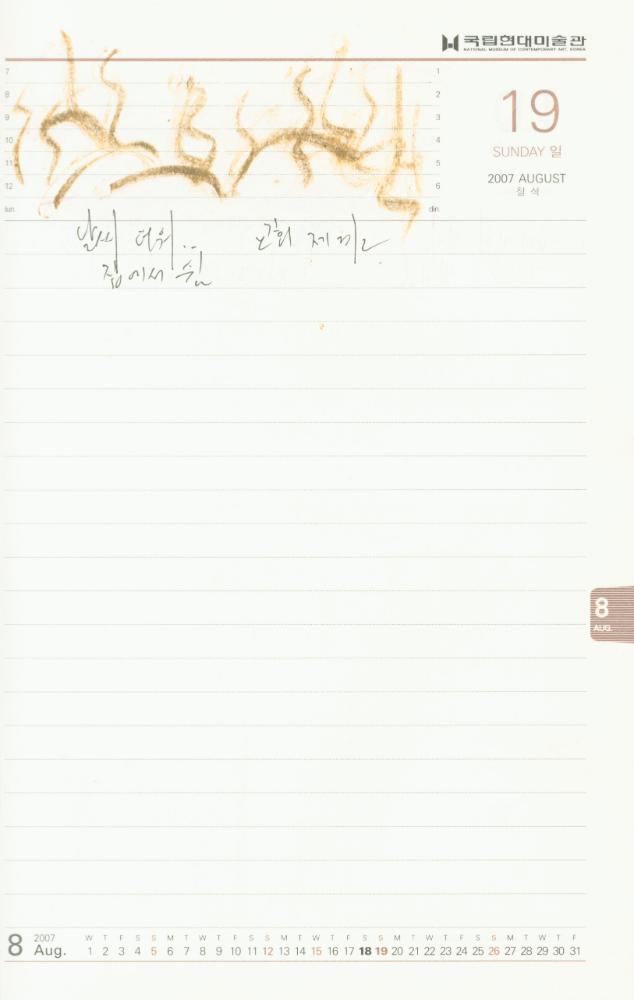 국립현대미술관
NATIONAL MUSEUM OF CONTEMPORARY ART, KOREA
7 1
8 2
9 3
10 4
11 5
12 6
lun. din.
19
SUNDAY 일
2007 AUGUST
칠 석
날씨 더워.. 교회
집에서 쉼
8
AUG.
8 2007 Aug.
W T F S S M T W T F S S M T W T F S S M T W T F S S M T W T F
1 2 3 4 5 6 7 8 9 10 11 12 13 14 15 16 17 18 19 20 21 22 23 24 25 26 27 28 29 30 31